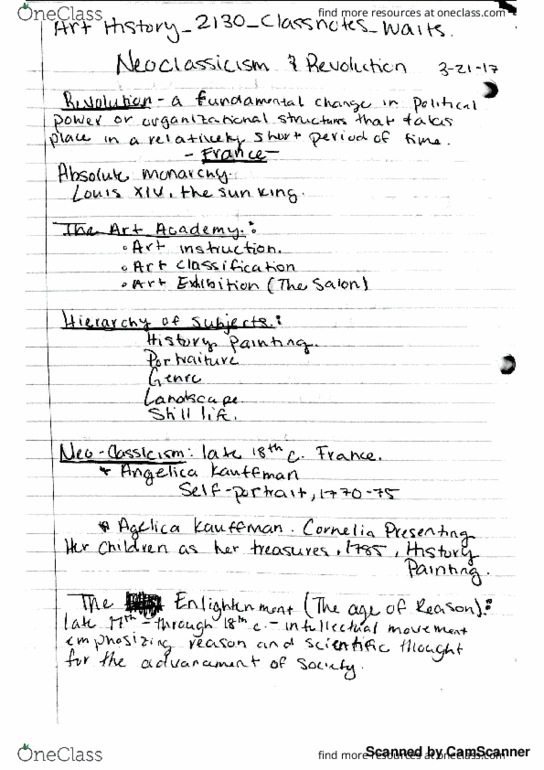 OneClass
find more resources at oneclass.com
find more resources at oneclass.com
Art History_2130_Classnotes_Waits.
Neoclassicism & Revolution 3-21-17
Revolution - a fundamental change in political
power or organizational structures that takes
place in a relatively short period of time.
- France -
Absolute monarchy.
Louis XIV, the sun king.
The Art Academy:
• Art instruction.
• Art classification
• Art Exhibition (The Salon)
Hierarchy of Subjects:
History Painting.
Portraiture
Genre
Landscape.
Still life.
Neo-Classicism: late 18th c. France.
* Angelica Kauffman
Self-portrait, 1770-75
* Agelica Kauffman. Cornelia Presenting
Her children as her treasures, 1785, History
Painting.
The Enlightenment (The age of Reason):
late 17th - through 18th c. - intellectual movement
emphosizing reason and scientific thought
for the advancement of society.
OneClass
find more resources at oneclass.com
Scanned by CamScanner